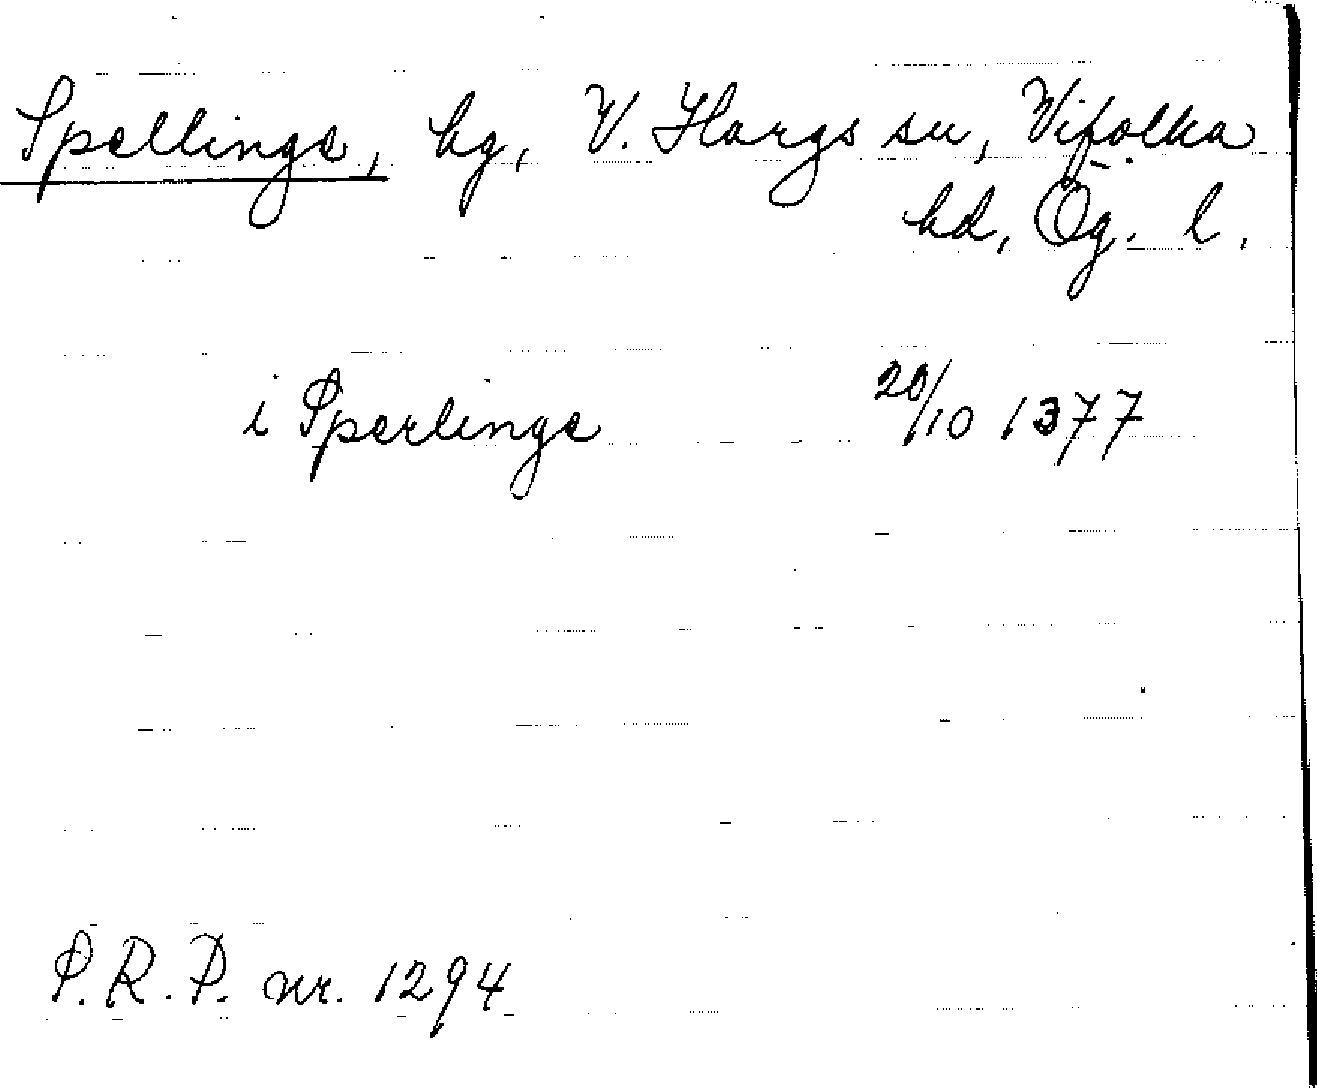 Spellinge, by, V. Hargs sn, Vifolka
hd, Ög. l.
i Sperlinge 20/10 1377
S.R.P. nr. 1294